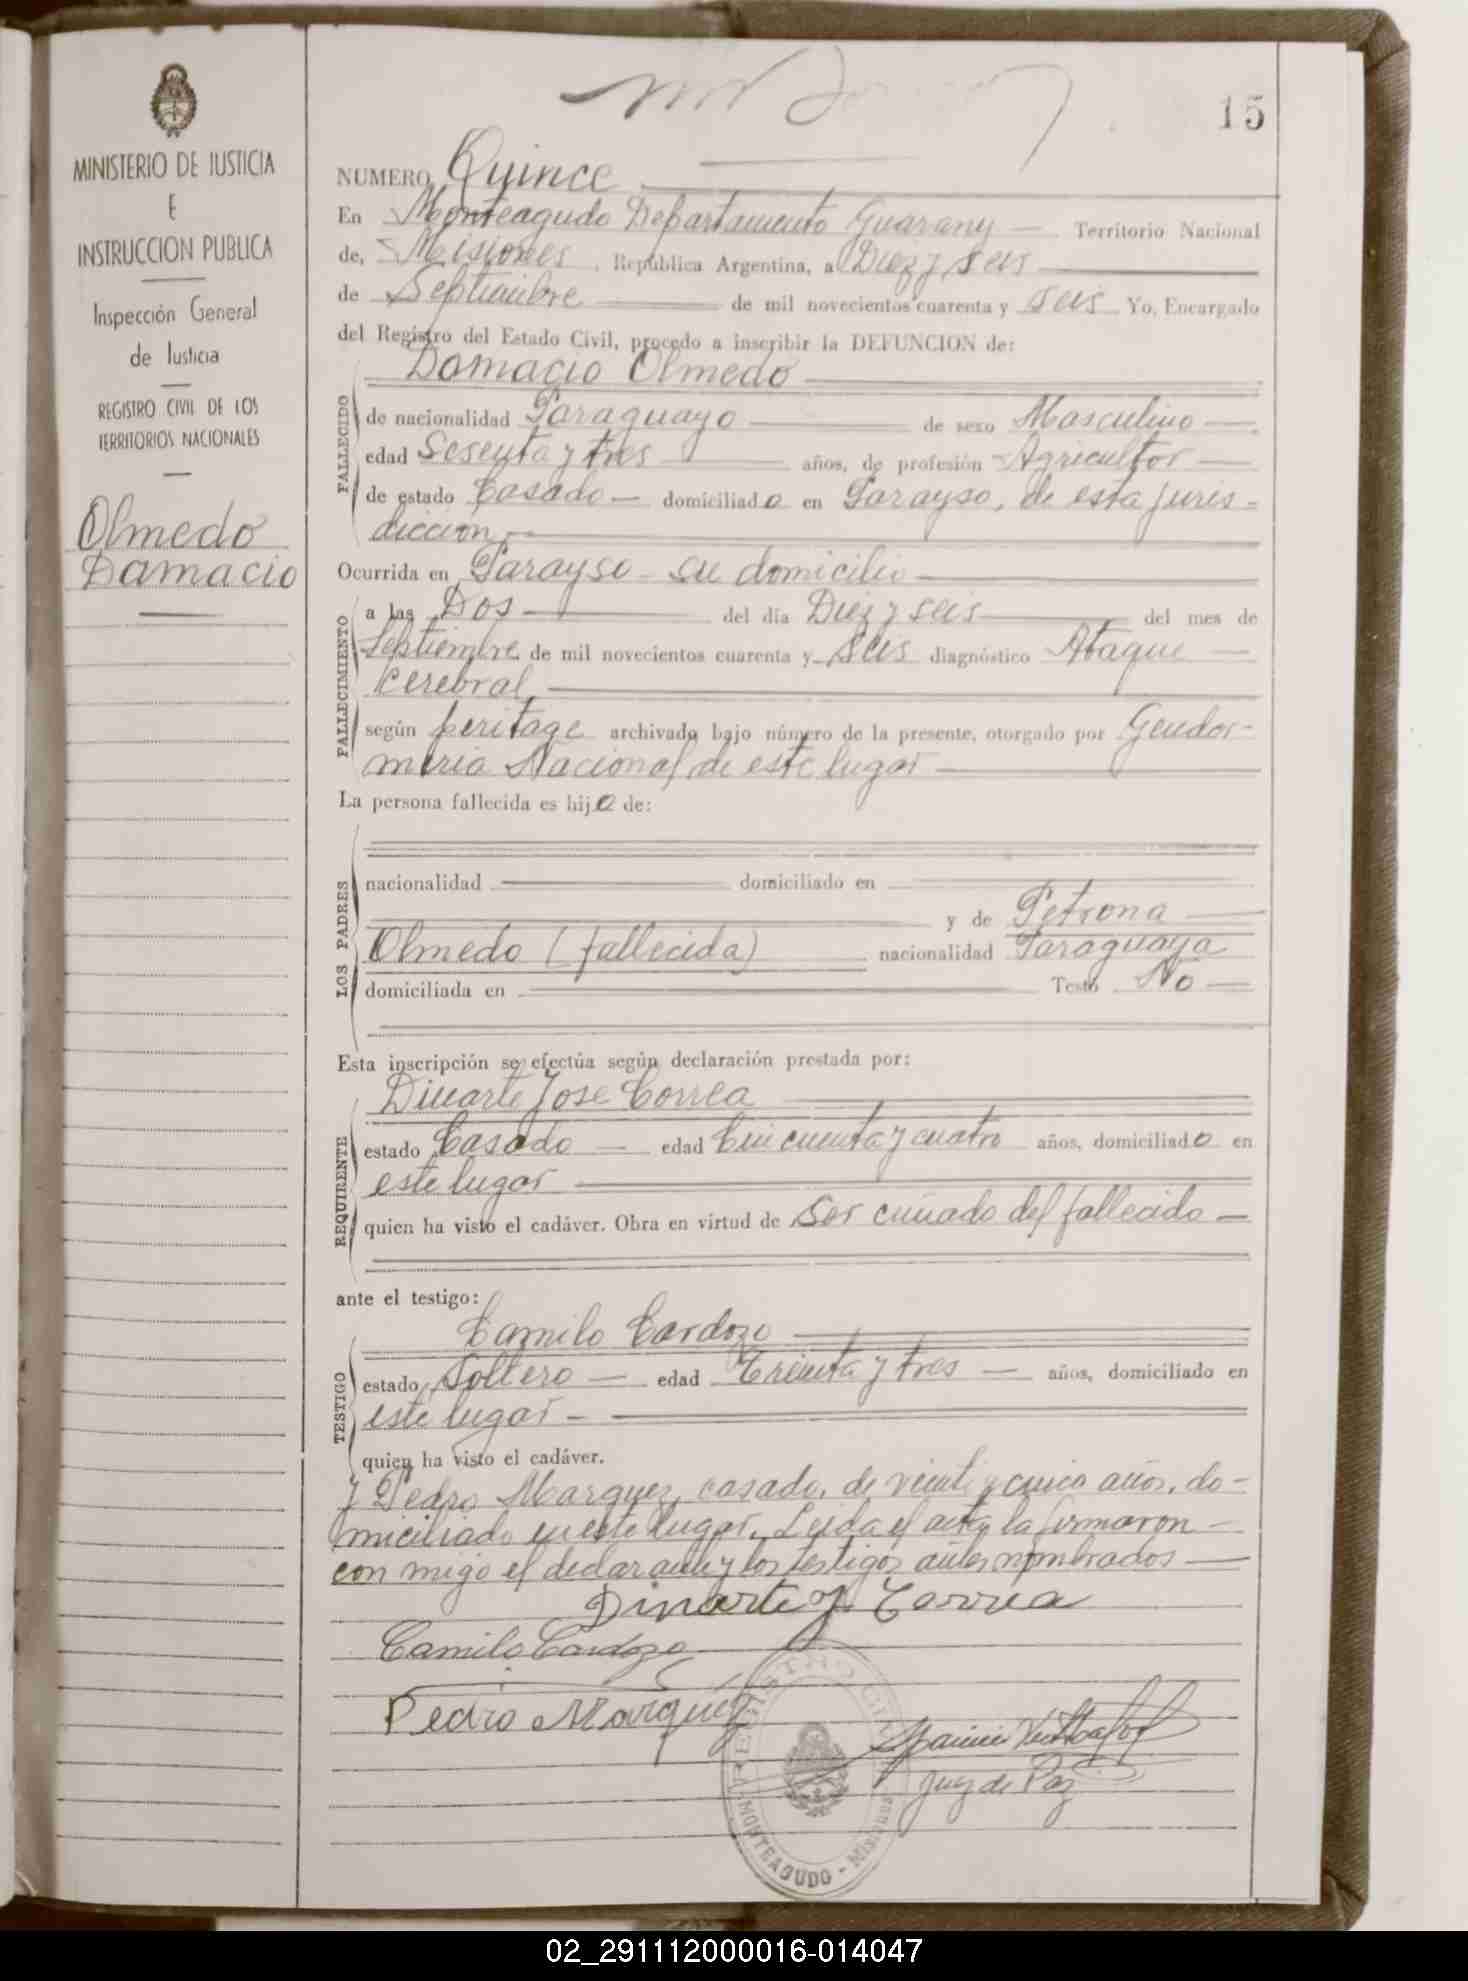 MINISTERIO DE JUSTICIA
E
INSTRUCCION PUBLICA
Inspección General
de Justicia
REGISTRO CIVIL DE LOS
TERRITORIOS NACIONALES
Olmedo
Damacio
15
NUMERO Quince
En Monteagudo Departamento Guarany Territorio Nacional
de, Misiones, República Argentina, a Diez y seis
de Septiembre de mil novecientos cuarenta y seis Yo, Encargado
del Registro del Estado Civil, procedo a inscribir la DEFUNCION de:
Damacio Olmedo
FALLECIDO
de nacionalidad Paraguayo de sexo Masculino
edad Sesenta y tres años, de profesión Agricultor
de estado Casado domiciliado en Parayso, de esta juris-
diccion,
Ocurrida en Parayso su domicilio
FALLECIMIENTO
a las Dos del día Diez y seis del mes de
Septiembre de mil novecientos cuarenta y seis diagnóstico Ataque
cerebral,
según peritage archivado bajo número de la presente, otorgado por Gendar-
meria Nacional de este lugar
La persona fallecida es hijo de:
LOS PADRES
nacionalidad domiciliado en
y de Petrona
Olmedo (fallecida) nacionalidad Paraguaya
domiciliada en Testó No
Esta inscripción se efectúa según declaración prestada por:
REQUIRENTE
Dinarte Jose Correa
estado Casado edad Cincuenta y cuatro años, domiciliado en
este lugar
quien ha visto el cadáver. Obra en virtud de Ser cuñado del fallecido
ante el testigo:
TESTIGO
Camilo Cardozo
estado Soltero edad Treinta y tres años, domiciliado en
este lugar
quien ha visto el cadáver.
y Pedro Marquez, casado, de veinti y cinco años, do-
miciliado en este lugar. Leida el acta, la firmaron
con migo el declarante y los testigos antes nombrados
Dinarte J. Correa
Camilo Cardozo
Pedro Marquez
Juez de Paz
REGISTRO CIVIL
MONTEAGUDO - Misiones
02_291112000016-014047